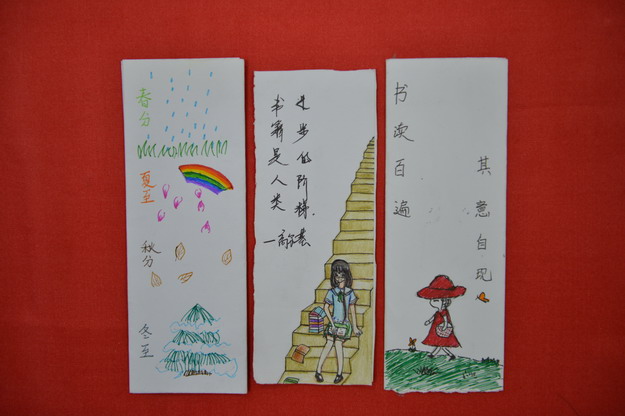 春分
夏至
秋分
冬至
书籍是人类
进步的阶梯.
—高尔基
书读百遍
其意自现